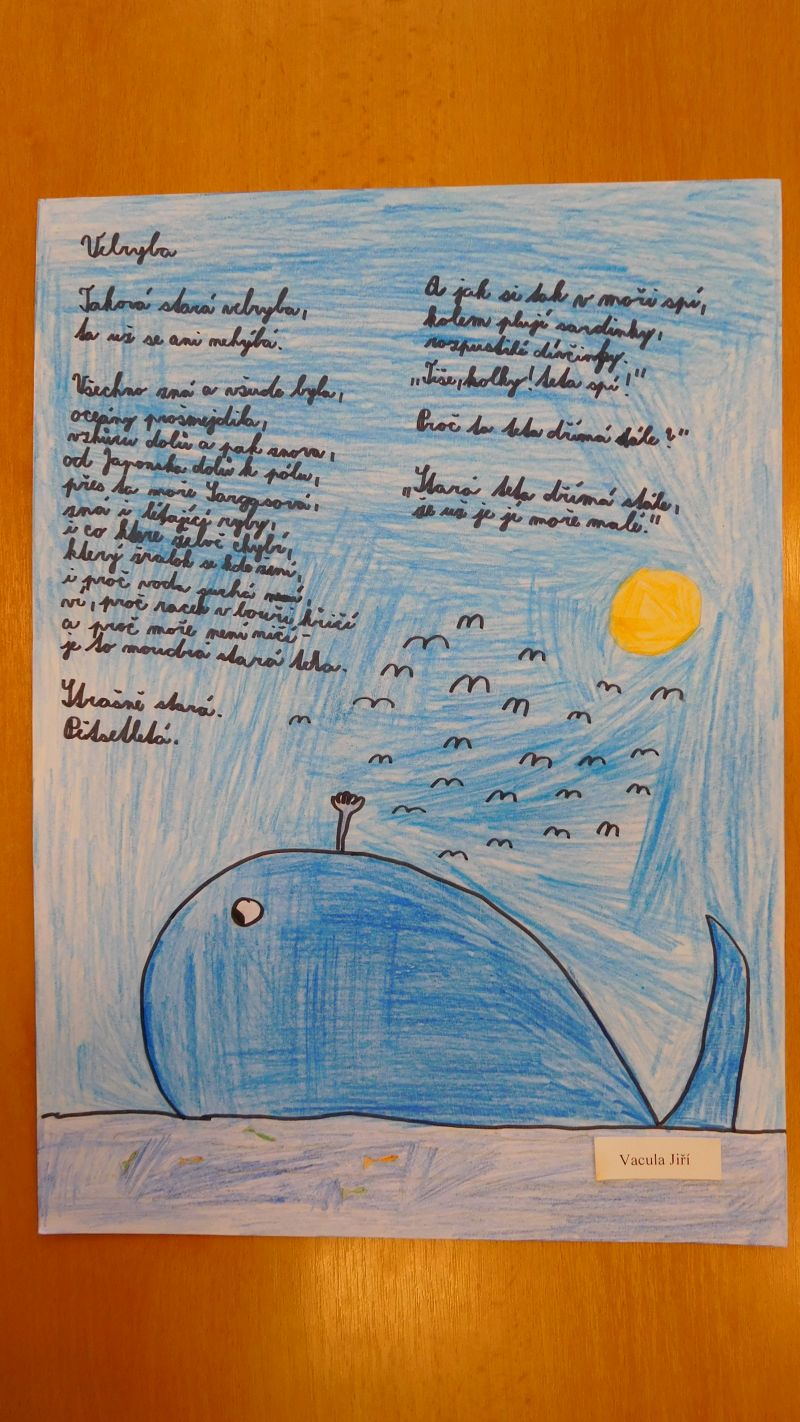 Velryba
Taková stará velryba,
ta už se ani nehýbá.
Všechno zná a všude byla,
oceány prošmejdila,
vzhůru dolů a pak znova,
od Japonska dolů k pólu,
přes to moře Sargasová,
zná i létající ryby,
i co které želvě chybí,
který žralok se kdo žení,
i proč voda suchá není,
ví, proč racek v bouři křičí
a proč moře není ničí -
je to moudrá stará teta.
Strašně stará.
Pětsetletá.
A jak si tak v moři spí,
kolem plují sardinky,
rozpustilé dívčinky.
„Tiše, holky! teta spí!"
Proč ta teta dřímá stále?"
„Stará teta dřímá stále,
že už je jí moře malé."
Vacula Jiří